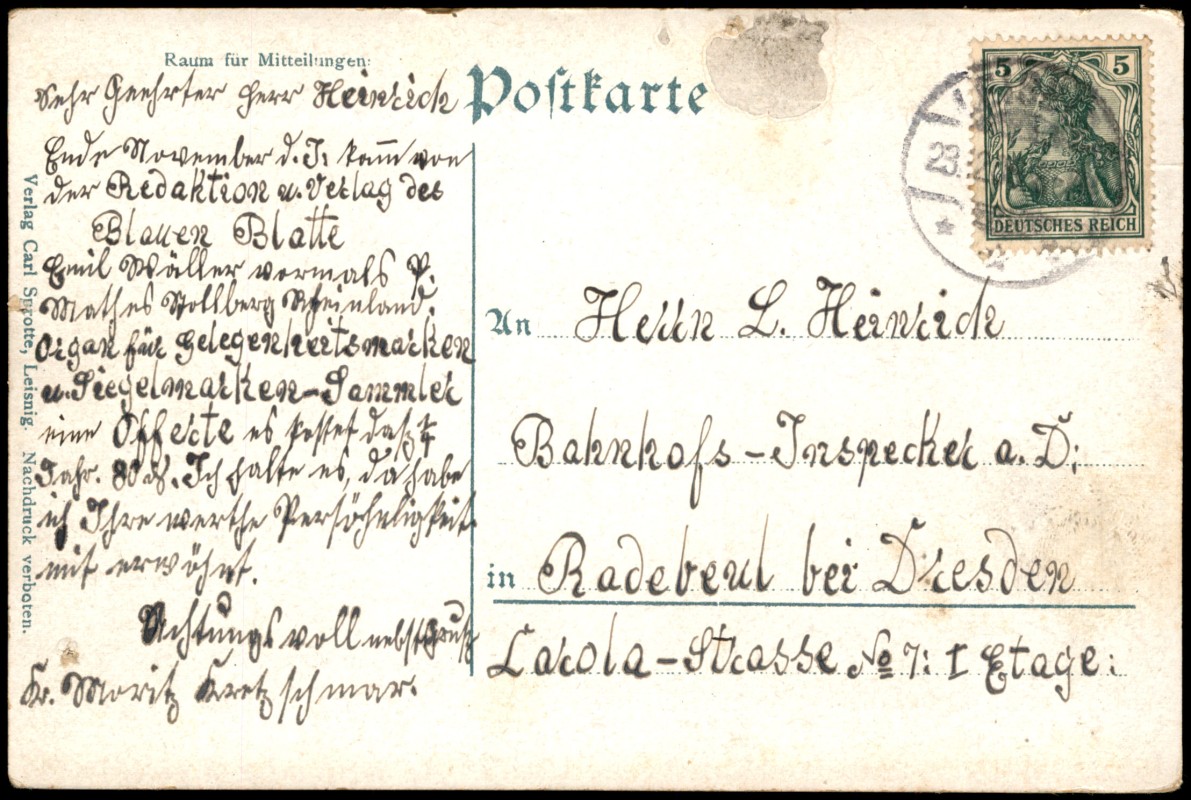 Raum für Mitteilungen:
Postkarte
Sehr Geehrter Herr Heinrich
Ende November d. J. kam von
der Redaktion u. Verlag des
Blauen Blatte
Emil Wäller vormals P.
Mathes Stollberg Rheinland.
Organ für Gelegenheitsmarken
u. Siegelmarken-Sammler
eine Offerte es kostet daß
Jahr. 80 Ich halte es, da habe
ich Ihre werthe Persöhnligkeit
mit erwöhnt.
Achtungsvoll nebst Gruß
Fr. Moritz Kretzschmar.
Verlag Carl Sprotte, Leisnig. Nachdruck verboten.
5 5
DEUTSCHES REICH
28.
An Herrn L. Heinrich
Bahnhofs-Inspecker a. D:
in Radebeul bei Dresden
Carola-Strasse No 7: I Etage: